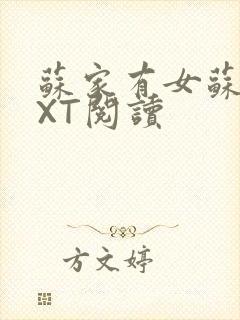 蘇家有女蘇
XT閱讀
方文婷